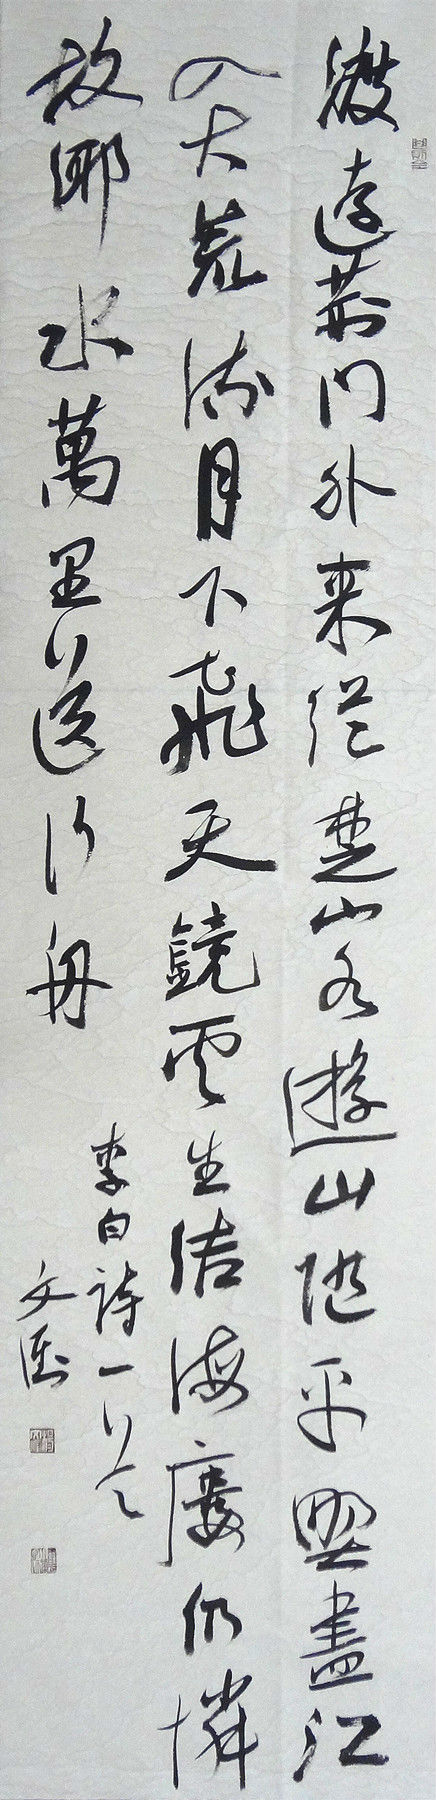 渡遠荊門外来從楚山遊山隨平野盡江
入大荒流月下飛天鏡雲生结海廔仍憐
故鄉水萬里送行舟
李白詩一首
文